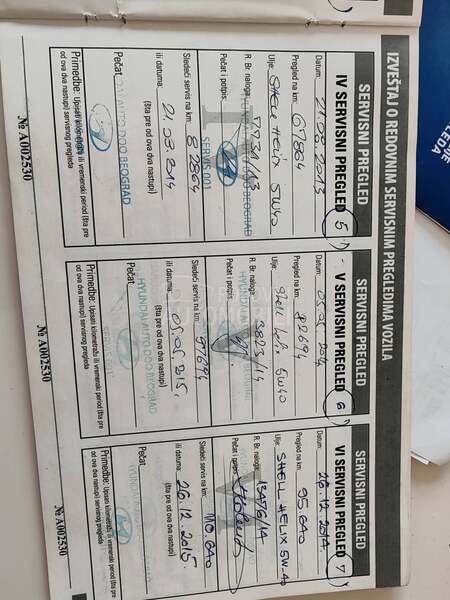 IZVEŠTAJ O REDOVNIM SERVISNIM PREGLEDIMA VOZILA
SERVISNI PREGLED
IV SERVISNI PREGLED 5
Datum: 21.08.2013
Pregled na km: 67864
Ulje: SHELL HELIX 5W40
R. Br. naloga:
Pečat i potpis:
SERVIS 001
Sledeći servis na km: 82864
(šta pre od ova dva nastupi)
ili datuma: 21.08.2014
Pečat
HYUNDAI AUTO DOO BEOGRAD
Primedbe: Upisati kilometražu ili vremenski period (šta pre
od ova dva nastupi) servisnog pregleda
№ A002530
SERVISNI PREGLED
V SERVISNI PREGLED 6
Datum: 05.05.2014
Pregled na km: 82694
Ulje: Shell 5W40
R. Br. naloga: 5823/14
Pečat i potpis:
Sledeći servis na km: 97694
(šta pre od ova dva nastupi)
ili datuma: 05.05.2015.
Pečat
HYUNDAI AUTO DOO BEOGRAD
Primedbe: Upisati kilometražu ili vremenski period (šta pre
od ova dva nastupi) servisnog pregleda
№ A002530
SERVISNI PREGLED
VI SERVISNI PREGLED 7
Datum: 26.12.2014.
Pregled na km: 95.640
Ulje: SHELL HELIX 5W-40
R. Br. naloga: 13476/14
Pečat i potpis:
Sledeći servis na km: 110.640
(šta pre od ova dva nastupi)
ili datuma: 26.12.2015.
Pečat
Primedbe: Upisati kilometražu ili vremenski period (šta pre
od ova dva nastupi) servisnog pregleda
№ A002530